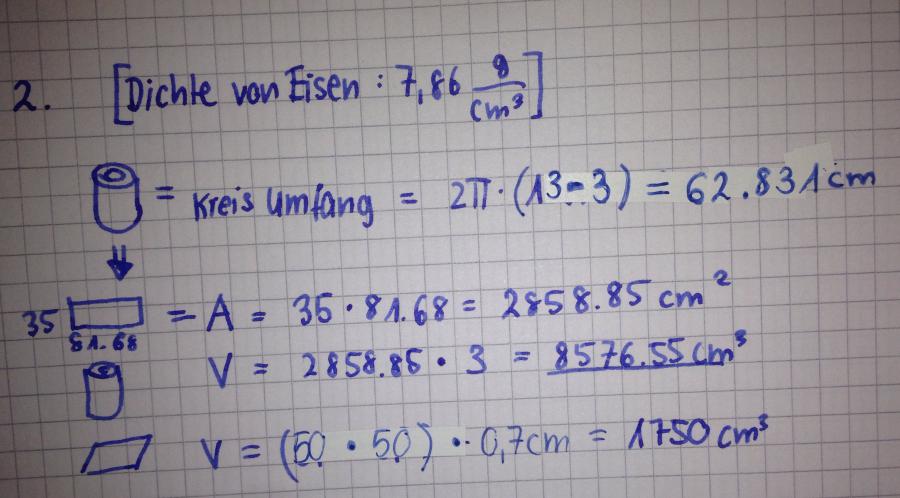 2. [Dichte von Eisen : 7,86 g/cm³]
= Kreis Umfang = 2π · (13-3) = 62.831cm
35 = A = 35 · 81.68 = 2858.85 cm²
81.68
V = 2858.85 · 3 = 8576.55 cm³
V = (50 · 50) · 0,7cm = 1750 cm³